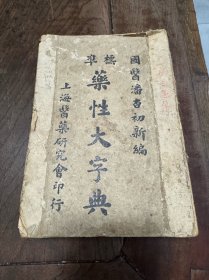 國醫潘杏初新編
標準
藥性大字典
上海醫藥研究會印行